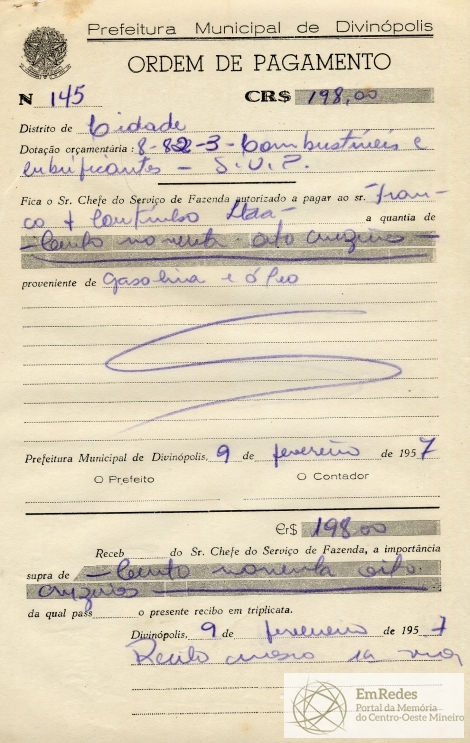 Prefeitura Municipal de Divinópolis
ORDEM DE PAGAMENTO
N 145 CR$ 198,00
Distrito de Cidade
Dotação orçamentária: 8-82-3-Combustíveis e
lubrificantes - S.V.P.
Fica o Sr. Chefe do Serviço de Fazenda autorizado a pagar ao sr. Fran-
co & Coutinho Ltda- a quantia de
-Cento noventa oito cruzeiros-
proveniente de Gasolina e óleo
Prefeitura Municipal de Divinópolis, 9 de fevereiro de 1957
O Prefeito O Contador
Cr$ 198,00
Receb do Sr. Chefe do Serviço de Fazenda, a importância
supra de -Cento noventa oito
cruzeiros
da qual pass o presente recibo em triplicata.
Divinópolis, 9 de fevereiro de 1957
Recibo anexo 1a via
EmRedes
Portal da Memória
do Centro-Oeste Mineiro